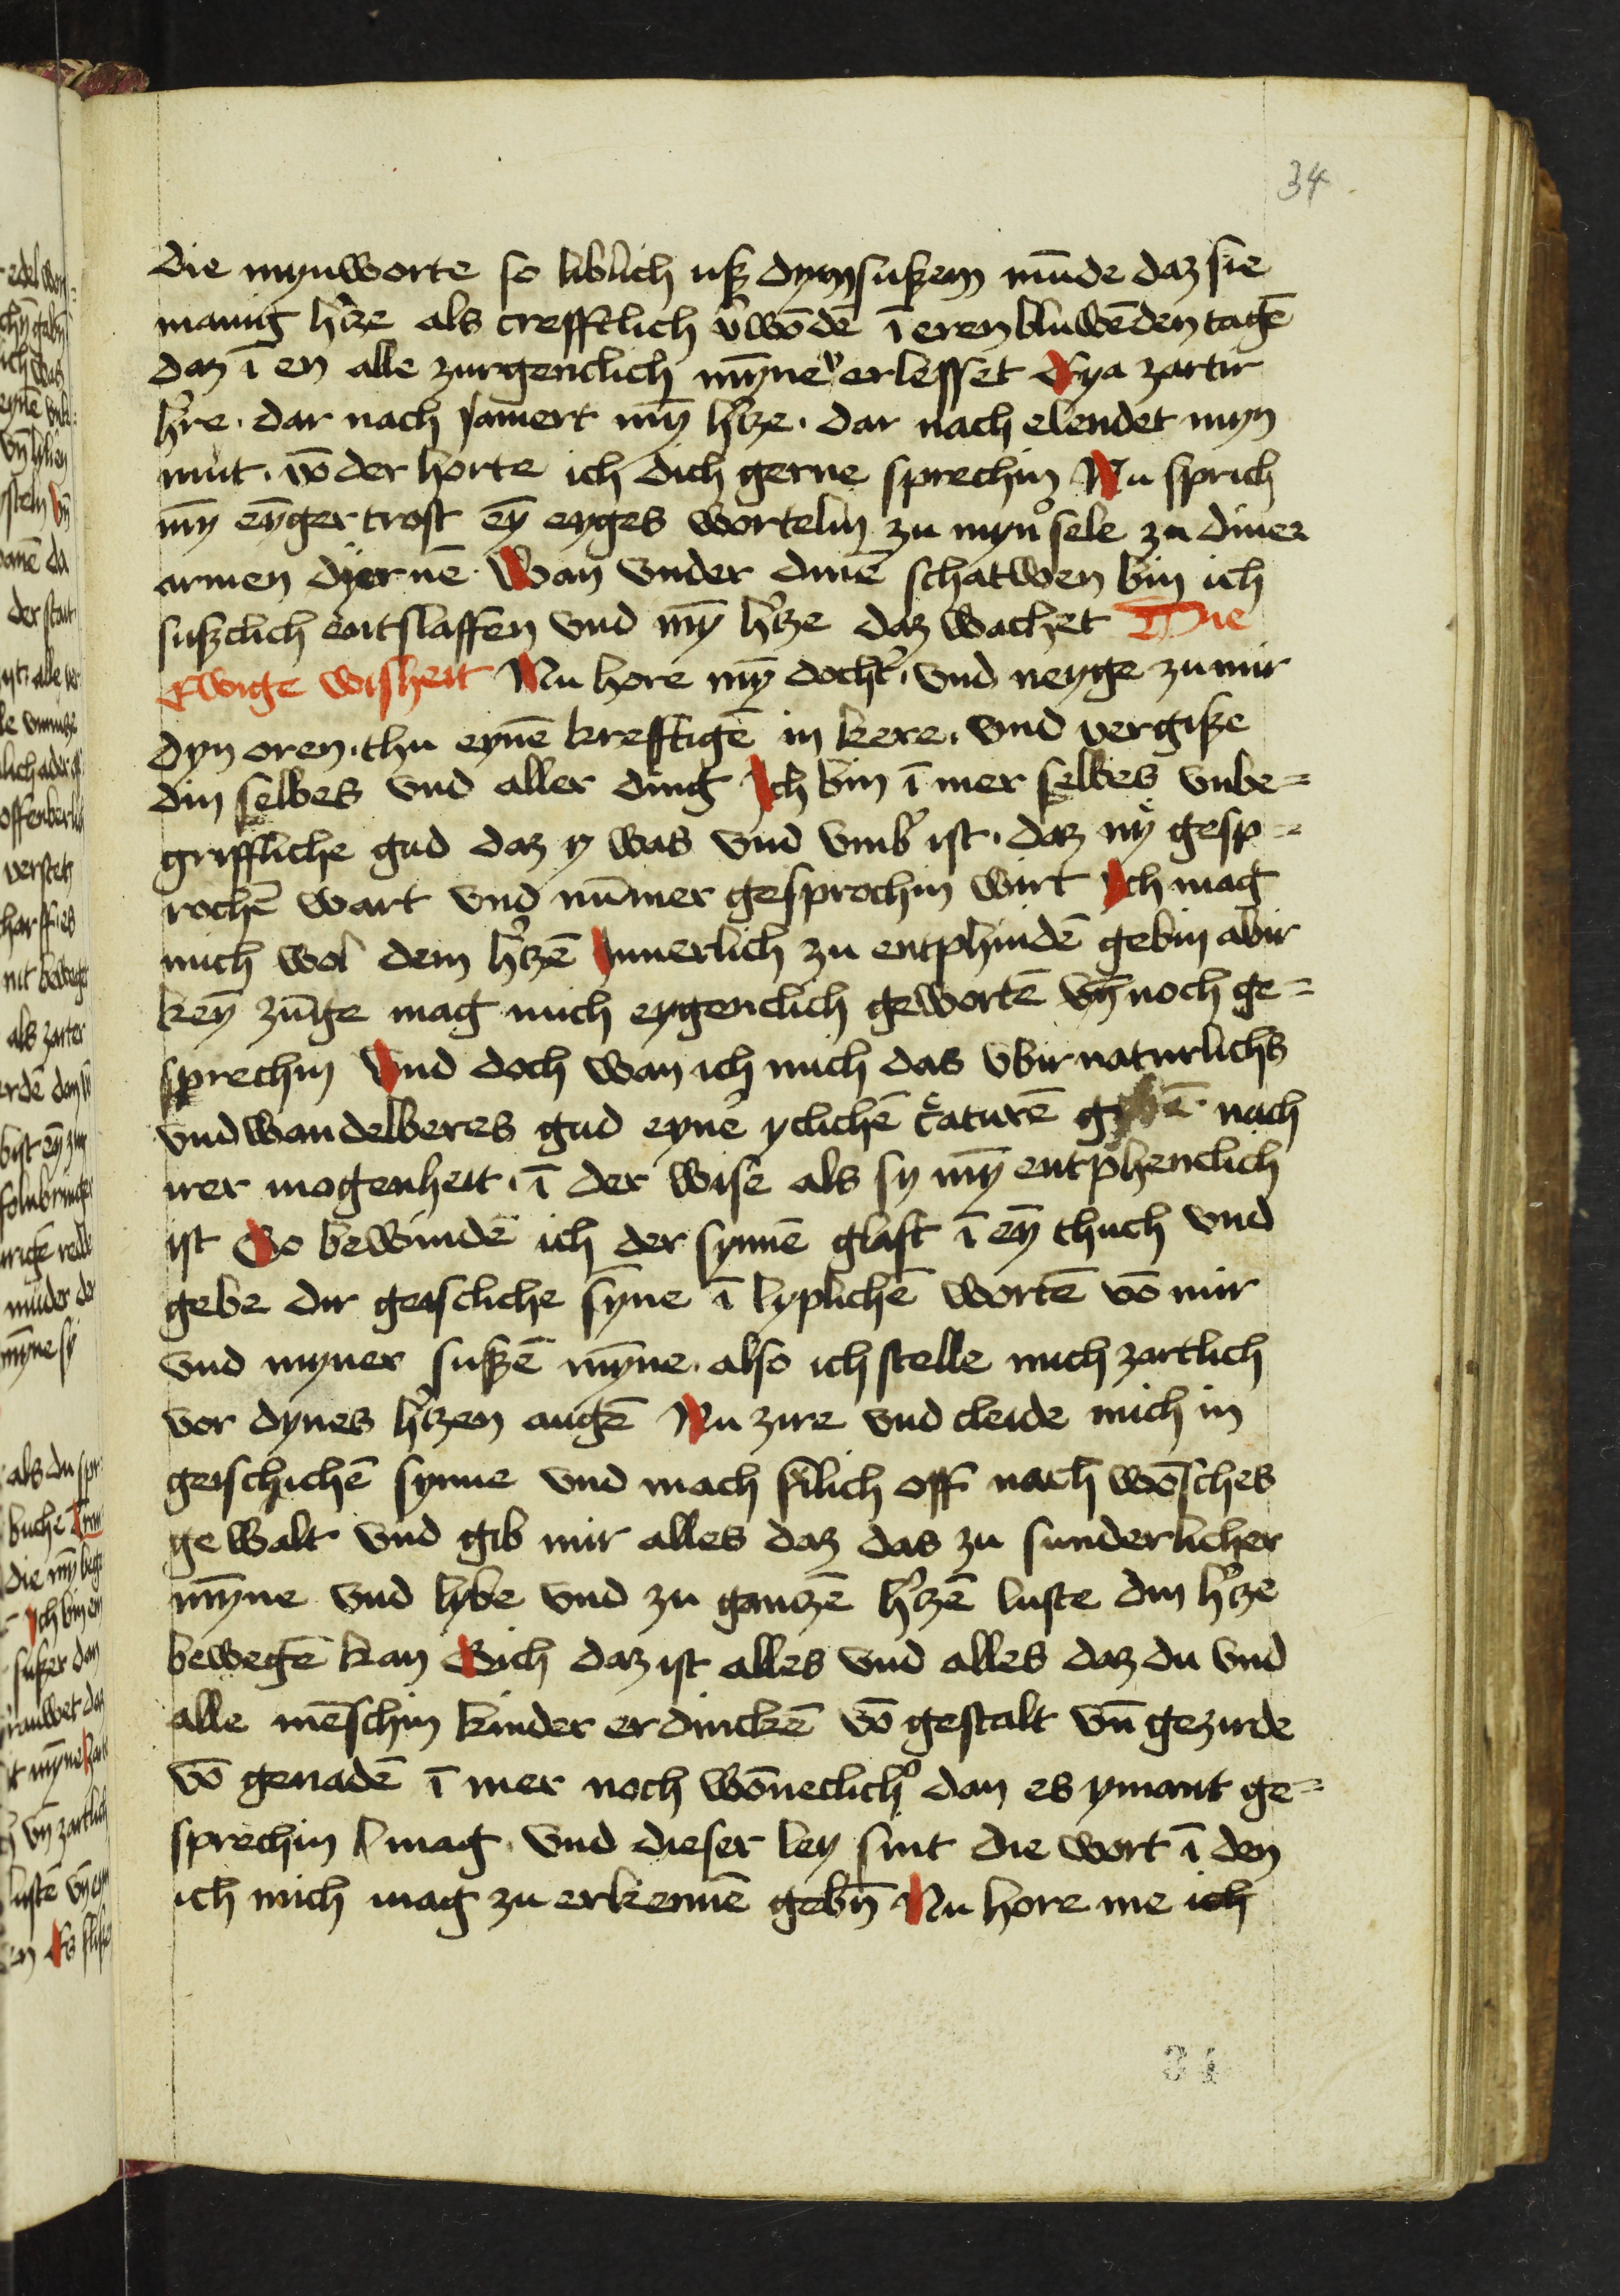 34
die mynworte so liblich uß dym sußem mūde daz sie
manig h'tze als crefftlich v'wōdē ī eren bluwēden tagē
daz ī en alle zurgenclich mȳne v'erlesset Eya zartir
h're · dar nach jamert mȳ h'tze · dar nach elendet myn
mut · vō der horte ich dich gerne sprechin Nu sprich
mȳ eȳger trost eȳ eyges wortelin zu myn' sele zu diner
armen dyernē · Wan vnder dinē schatwen bin ich
sußclich entslaffen vnd mȳ h'tze daz wachet Die
Ewige wisheit Nu hore mȳ docht' · vnd neyge zu mir
dyn oren · thu eynē krefftigē in kere · vnd vergiße
din selbes vnd aller ding Ich bin ī mer selbes vnbe=
griffliche gud daz y was vnd vmb' ist · daz ny gesp=
rochē wart vnd nūmer gesprochin wirt Ich mag
mich wol dem h'tzē Innerlich zu entphindē gebin abir
keȳ zūge mag mich eygenclich gewortē vn̄ noch ge=
sprechin Vnd doch wan ich mich das vbir naturlichs
vnd wandelberes gud eyne yclichē c'aturē gebē · nach
irer mogenheit · ī der wise als sy mȳ entphenclich
ist So bewindē ich der synnē glast ī eȳ thuch vnd
gebe dir geiscliche sȳne ī lyplichē wortē vō mir
vnd myner sußē mȳne · also ich stelle mich zartlich
vor dynes h'tzen augē Nu zire vnd cleide mich in
geischichē synne vnd mach filich off nach wōsches
gewalt vnd gib mir alles daz das zu sunderlicher
mȳne vnd lybe vnd zu gantzē h'tzē luste din h'tze
bewegē kan Sich daz ist alles vnd alles daz du vnd
alle mēschin kinder erdinckē vō gestalt vn̄ gezirde
vō genadē ī mer noch wōneclich' dan es ymant ge=
sprechin mag · vnd dieser ley sint die wort ī den
ich mich mag zu erkennē gebn̄ Nu hore me ich
34